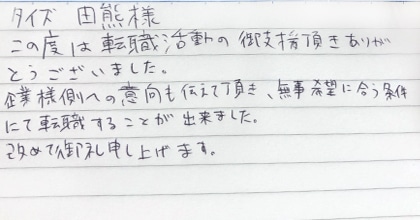 タイズ 田熊様
この度は転職活動の御支援頂きありが
とうございました。
企業様側への意向も伝えて頂き、無事希望に合う条件
にて転職することが出来ました。
改めて御礼申し上げます。